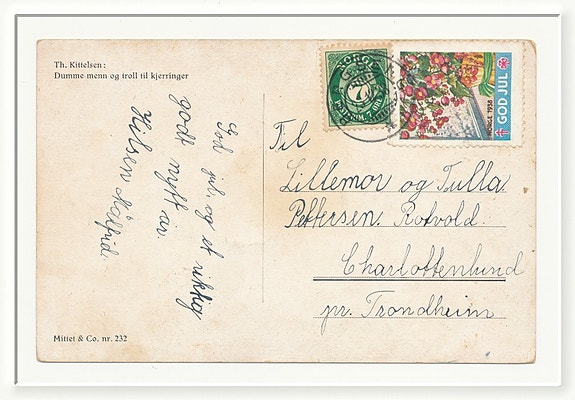 Th. Kittelsen:
Dumme menn og troll til kjerringer
God jul og et riktig
godt nytt år.
Hilsen Målfrid.
Mittet & Co. nr. 232
NORGE
7
GOD JUL
NORGE 1938
Til
Lillemor og Tulla
Pettersen. Rotvold.
Charlottenlund
pr. Trondheim